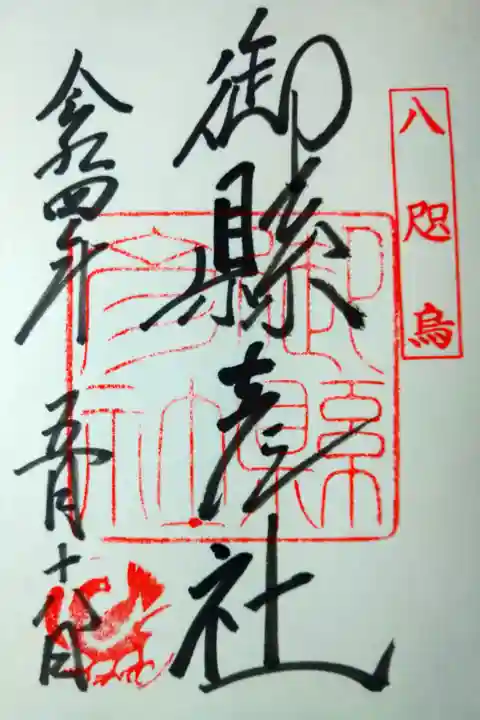 八咫烏
御縣彦社
御縣
彦社
令和四年 五月十八日